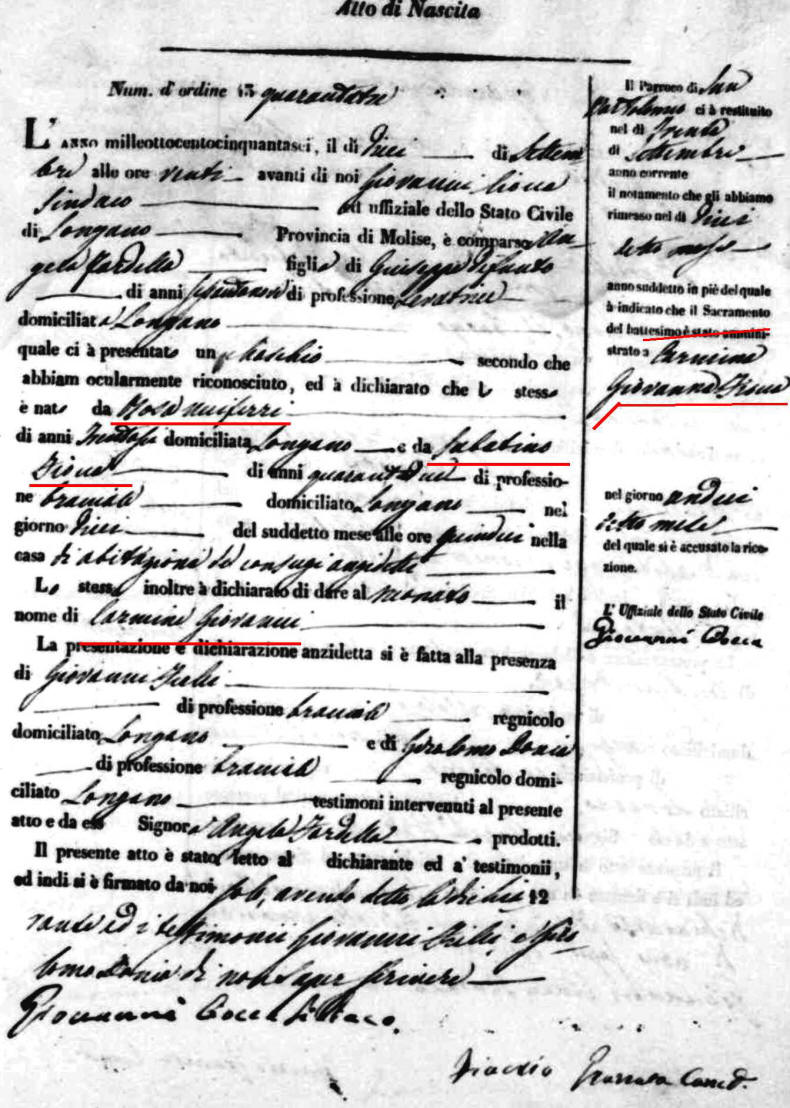 Atto di Nascita
Num. d'ordine 43 quarantatre
L'ANNO milleottocentocinquantasei, il dì dieci di Settem
bre alle ore venti avanti di noi Giovanni Cocca
Sindaco ed uffiziale dello Stato Civile
di Longano Provincia di Molise, è comparsa An
gela Fardella figlia di Giuseppe
di anni di professione Levatrice
domiciliata Longano
quale ci à presentato un Maschio secondo che
abbiam ocularmente riconosciuto, ed à dichiarato che lo stesso
è nato da Rosa
di anni domiciliata Longano e da Sabatino
di anni quarantadue di professio-
ne bracciale domiciliato Longano nel
giorno dieci del suddetto mese alle ore quindici nella
casa di abitazione de' coniugi anzidetti
Lo stesso inoltre à dichiarato di dare al neonato il
nome di Carmine Giovanni
La presentazione e dichiarazione anzidetta si è fatta alla presenza
di Giovanni
di professione bracciale regnicolo
domiciliato Longano e di Girolomo Donia
di professione bracciale regnicolo domi-
ciliato Longano testimoni intervenuti al presente
atto e da essa Signora Angela Fardella prodotti.
Il presente atto è stato letto al dichiarante ed a' testimonii,
ed indi si è firmato da noi soli, avendo detto la dichia 42
rante ed i testimonii Giovanni e Giro
lomo Donia di non saper scrivere
Giovanni Cocca Sindaco.
Il Parroco di San
Bartolomeo ci à restituito
nel dì trenta
di Settembre
anno corrente
il notamento che gli abbiamo
rimesso nel dì dieci
detto mese
anno suddetto in piè del quale
à indicato che il Sacramento
del battesimo è stato ammini-
strato a Carmine
Giovanni
nel giorno undici
detto mese
del quale si è accusato la rice-
zione.
L' Uffiziale dello Stato Civile
Giovanni Cocca